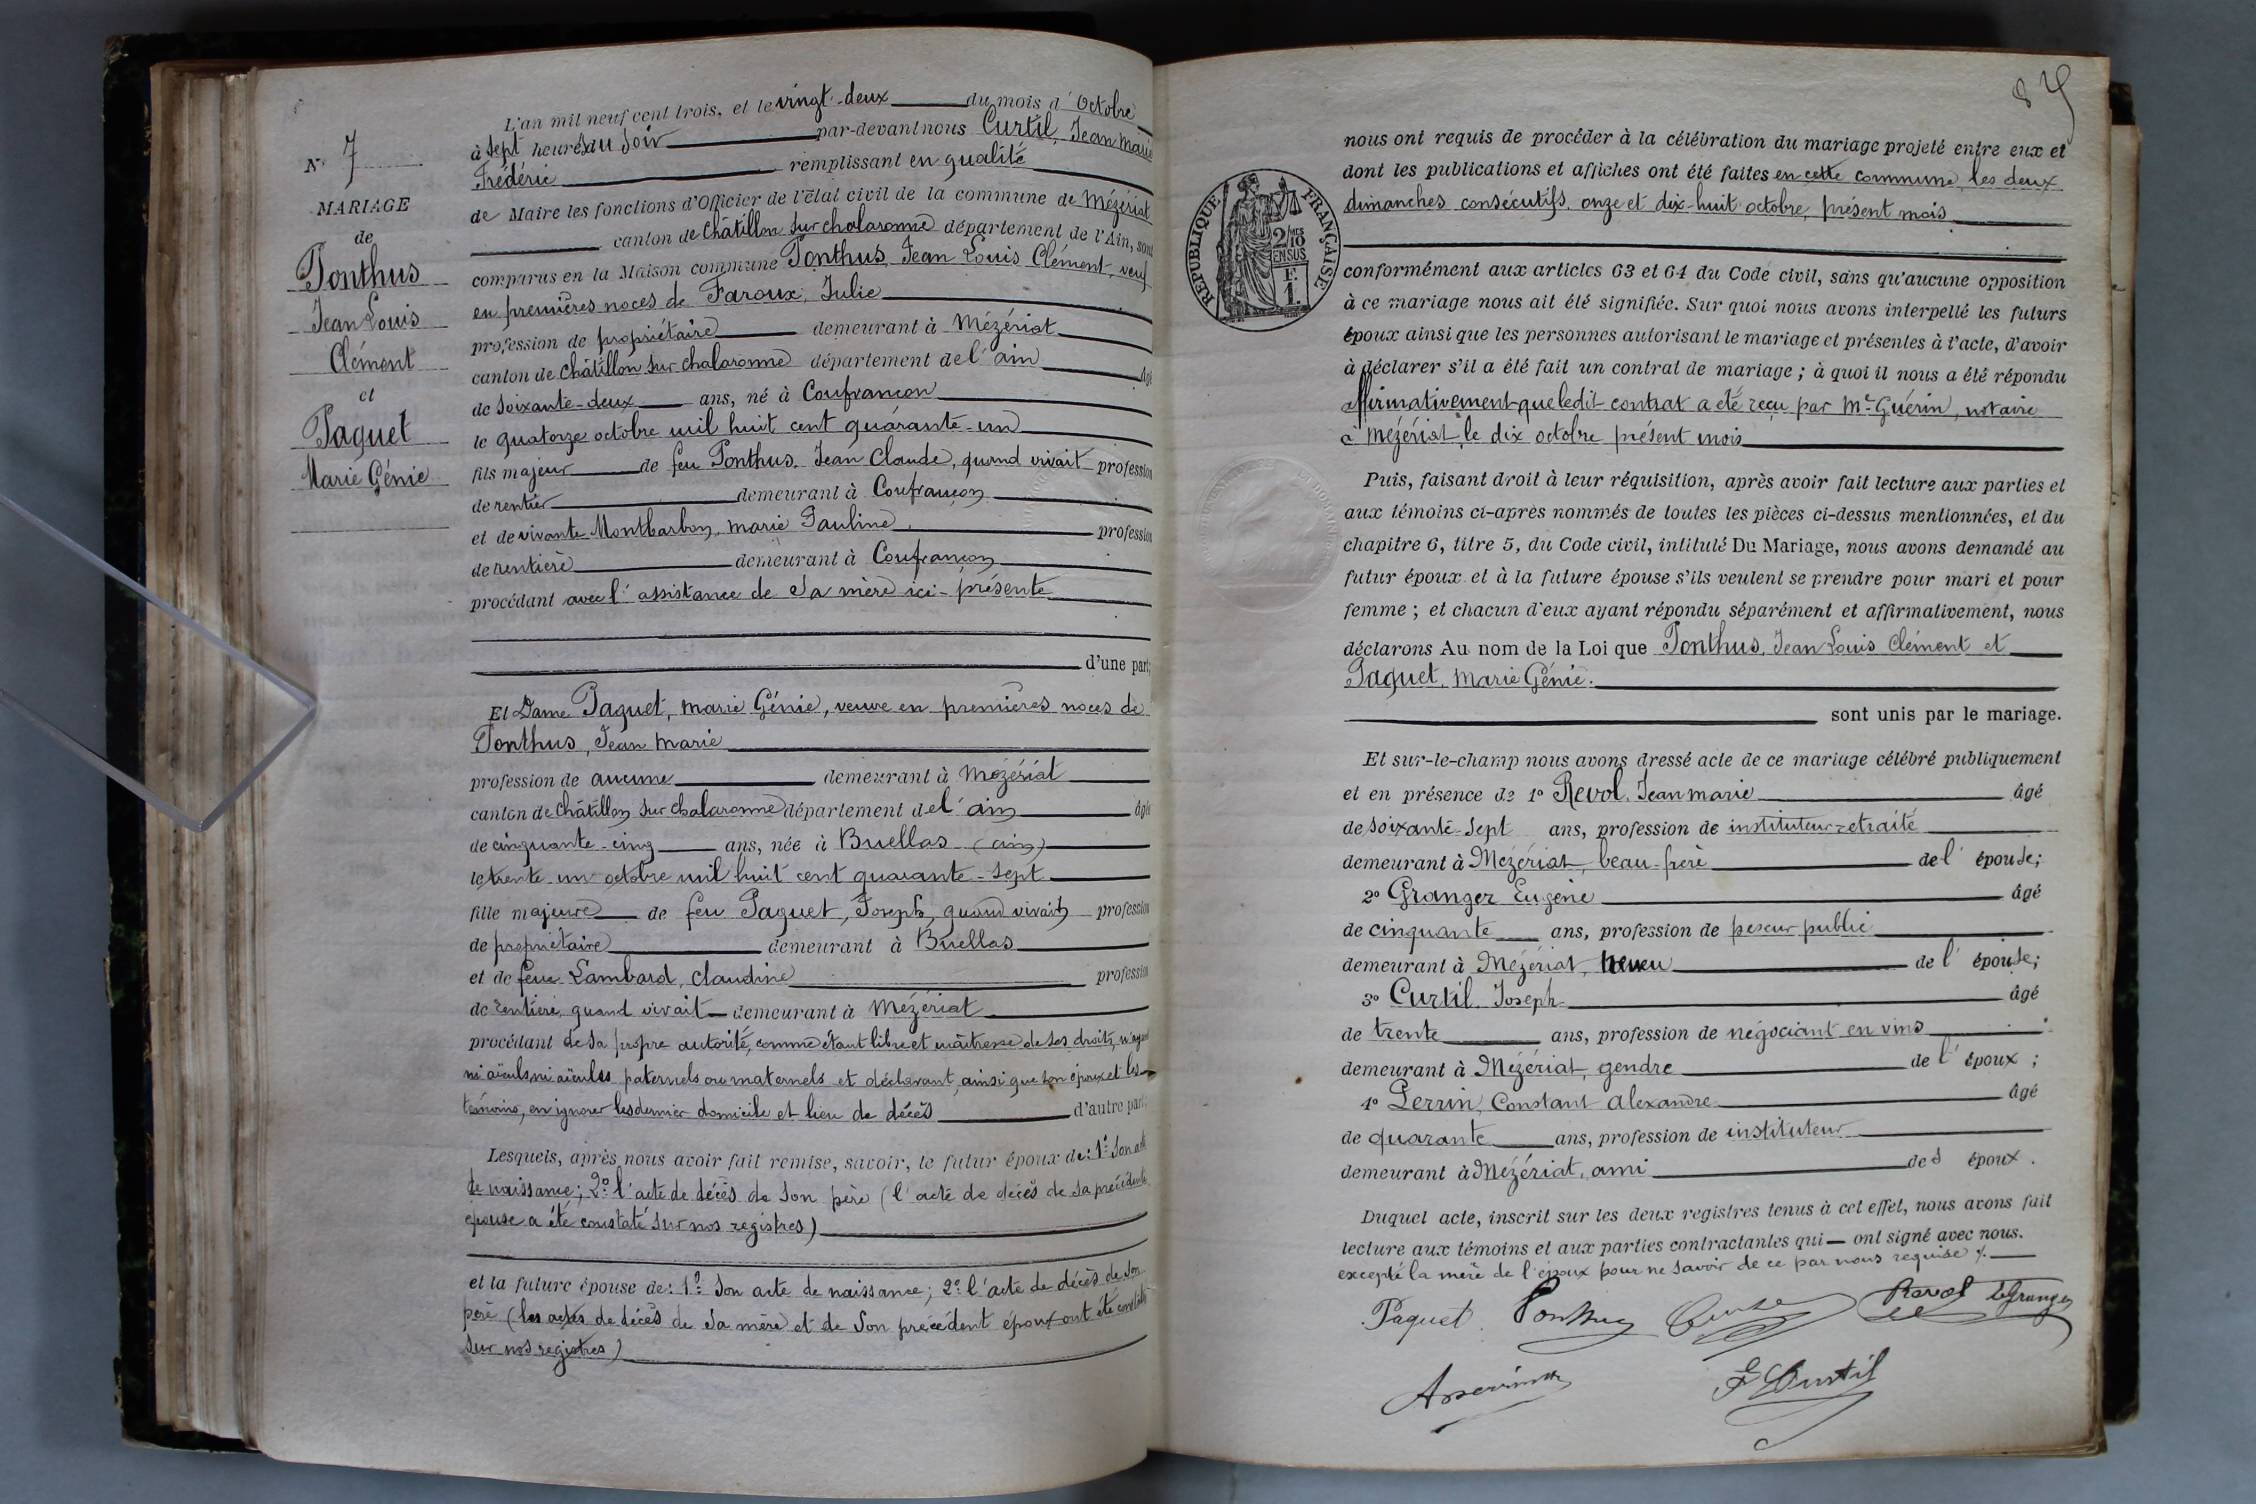 N° 7
MARIAGE
de
Ponthus
Jean Louis
Clément
et
Paquet
Marie Génie
L'an mil neuf cent trois, et le vingt-deux du mois d'Octobre
à sept heures du soir par-devant nous Curtil, Jean Marie
Frédéric remplissant en qualité
de Maire les fonctions d'Officier de l'état civil de la commune de Mézériat
canton de Châtillon sur chalaronne département de l'Ain, sont
comparus en la Maison commune Ponthus, Jean Louis Clément, veuf
en premières noces de Faroux, Julie
profession de propriétaire demeurant à Mézériat
canton de Châtillon sur chalaronne département de l'ain âgé
de soixante-deux ans, né à Confrançon
le quatorze octobre mil huit cent quarante-un
fils majeur de feu Ponthus, Jean Claude, quand vivait profession
de rentier demeurant à Confrançon
et de vivante Montbarbon, marie Pauline, profession
de rentière demeurant à Confrançon
procédant avec l'assistance de sa mère ici-présente
d'une part;
Et Dame Paquet, marie Génie, veuve en premières noces de
Ponthus, Jean marie
profession de aucune demeurant à Mézériat
canton de Châtillon sur chalaronne département de l'ain âgée
de cinquante-cinq ans, née à Buellas (ain)
le trente-un octobre mil huit cent quarante-sept
fille majeure de feu Paquet, Joseph, quand vivait profession
de propriétaire demeurant à Buellas
et de feue Lambard, claudine profession
de rentière, quand vivait demeurant à Mézériat
procédant de sa propre autorité, comme étant libre et maîtresse de ses droits, n'ayant
ni aïeuls ni aïeules paternels ou maternels et déclarant, ainsi que son époux et les
témoins, en ignorer les dernier domicile et lieu de décès d'autre part;
Lesquels, après nous avoir fait remise, savoir, le futur époux de: 1° Son acte
de naissance; 2° l'acte de décès de son père (l'acte de décès de sa précédente
épouse a été constaté sur nos registres)
et la future épouse de: 1° Son acte de naissance; 2° l'acte de décès de son
père (les actes de décès de sa mère et de son précédent époux ont été constatés
sur nos registres)
REPUBLIQUE FRANÇAISE
2/10 MES
EN SUS
F.
1.
nous ont requis de procéder à la célébration du mariage projeté entre eux et
dont les publications et affiches ont été faites en cette commune, les deux
dimanches consécutifs, onze et dix-huit octobre, présent mois
conformément aux articles 63 et 64 du Code civil, sans qu'aucune opposition
à ce mariage nous ait été signifiée. Sur quoi nous avons interpellé les futurs
époux ainsi que les personnes autorisant le mariage et présentes à l'acte, d'avoir
à déclarer s'il a été fait un contrat de mariage; à quoi il nous a été répondu
affirmativement que ledit contrat a été reçu par Me Guérin, notaire
à Mézériat, le dix octobre présent mois
Puis, faisant droit à leur réquisition, après avoir fait lecture aux parties et
aux témoins ci-après nommés de toutes les pièces ci-dessus mentionnées, et du
chapitre 6, titre 5, du Code civil, intitulé Du Mariage, nous avons demandé au
futur époux et à la future épouse s'ils veulent se prendre pour mari et pour
femme; et chacun d'eux ayant répondu séparément et affirmativement, nous
déclarons Au nom de la Loi que Ponthus, Jean Louis Clément et
Paquet, Marie Génie.
sont unis par le mariage.
Et sur-le-champ nous avons dressé acte de ce mariage célébré publiquement
et en présence de 1° Revol, Jean marie âgé
de soixante-sept ans, profession de instituteur retraité
demeurant à Mézériat, beau-frère de l'épouse;
2° Granger Eugène âgé
de cinquante ans, profession de peseur public
demeurant à Mézériat, neveu de l'épouse;
3° Curtil, Joseph âgé
de trente ans, profession de négociant en vins
demeurant à Mézériat, gendre de l'époux;
4° Perrin, Constant alexandre âgé
de quarante ans, profession de instituteur
demeurant à Mézériat, ami des époux.
Duquel acte, inscrit sur les deux registres tenus à cet effet, nous avons fait
lecture aux témoins et aux parties contractantes qui ont signé avec nous.
excepté la mère de l'époux pour ne savoir de ce par nous requise
Paquet Ponthus Revol Granger
Curtil